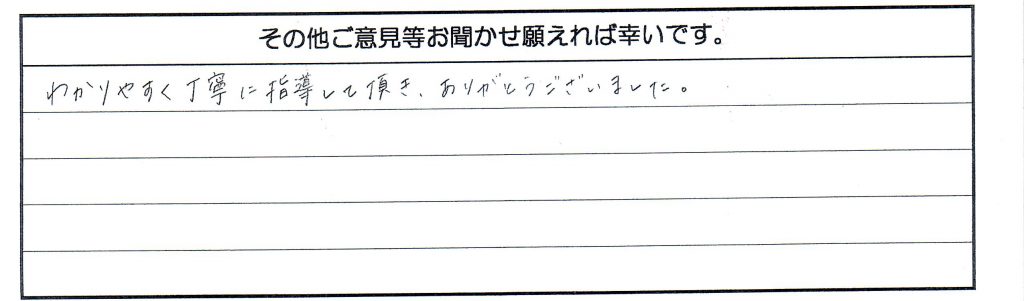 その他ご意見等お聞かせ願えれば幸いです。
わかりやすく丁寧に指導して頂き、ありがとうございました。